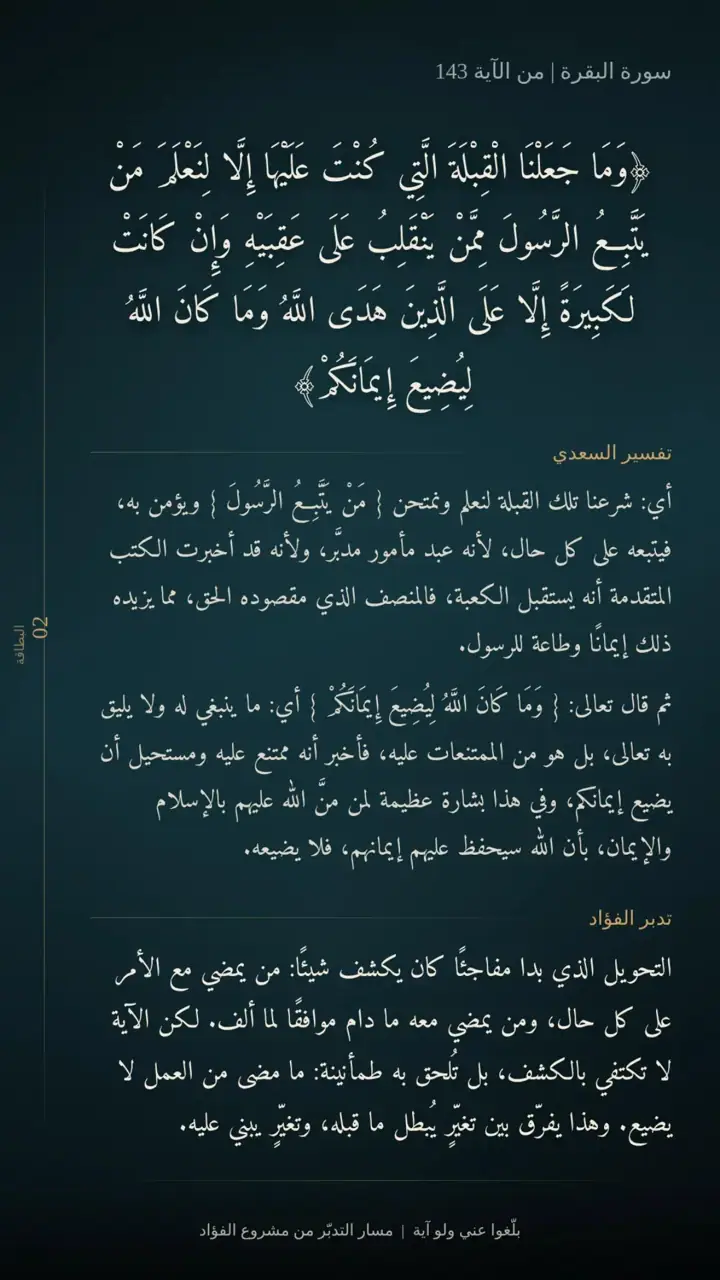 سورة البقرة | من الآية 143
﴿وَمَا جَعَلْنَا الْقِبْلَةَ الَّتِي كُنْتَ عَلَيْهَا إِلَّا لِنَعْلَمَ مَنْ
يَتَّبِعُ الرَّسُولَ مِمَّنْ يَنْقَلِبُ عَلَى عَقِبَيْهِ وَإِنْ كَانَتْ
لَكَبِيرَةً إِلَّا عَلَى الَّذِينَ هَدَى اللَّهُ وَمَا كَانَ اللَّهُ
لِيُضِيعَ إِيمَانَكُمْ﴾
تفسير السعدي
أي: شرعنا تلك القبلة لنعلم ونمتحن { مَنْ يَتَّبِعُ الرَّسُولَ } ويؤمن به،
فيتبعه على كل حال، لأنه عبد مأمور مدبَّر، ولأنه قد أخبرت الكتب
المتقدمة أنه يستقبل الكعبة، فالمنصف الذي مقصوده الحق، مما يزيده
ذلك إيمانًا وطاعة للرسول.
ثم قال تعالى: { وَمَا كَانَ اللَّهُ لِيُضِيعَ إِيمَانَكُمْ } أي: ما ينبغي له ولا يليق
به تعالى، بل هو من الممتنعات عليه، فأخبر أنه ممتنع عليه ومستحيل أن
يضيع إيمانكم، وفي هذا بشارة عظيمة لمن منَّ الله عليهم بالإسلام
والإيمان، بأن الله سيحفظ عليهم إيمانهم، فلا يضيعه.
تدبر الفؤاد
التحويل الذي بدا مفاجئًا كان يكشف شيئًا: من يمضي مع الأمر
على كل حال، ومن يمضي معه ما دام موافقًا لما ألف. لكن الآية
لا تكتفي بالكشف، بل تُلحق به طمأنينة: ما مضى من العمل لا
يضيع. وهذا يفرّق بين تغيّرٍ يُبطل ما قبله، وتغيّرٍ يبني عليه.
02
البطاقة
بلّغوا عني ولو آية | مسار التدبّر من مشروع الفؤاد